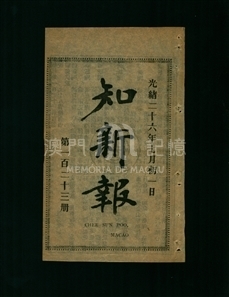 光緒二十六年月初一日
知新報
第一百二十三冊
澳門記憶
MEMÓRIA DE MACAU
SUN POO,
MACAO